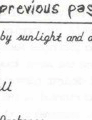 previous pas
by sunlight and a
ll